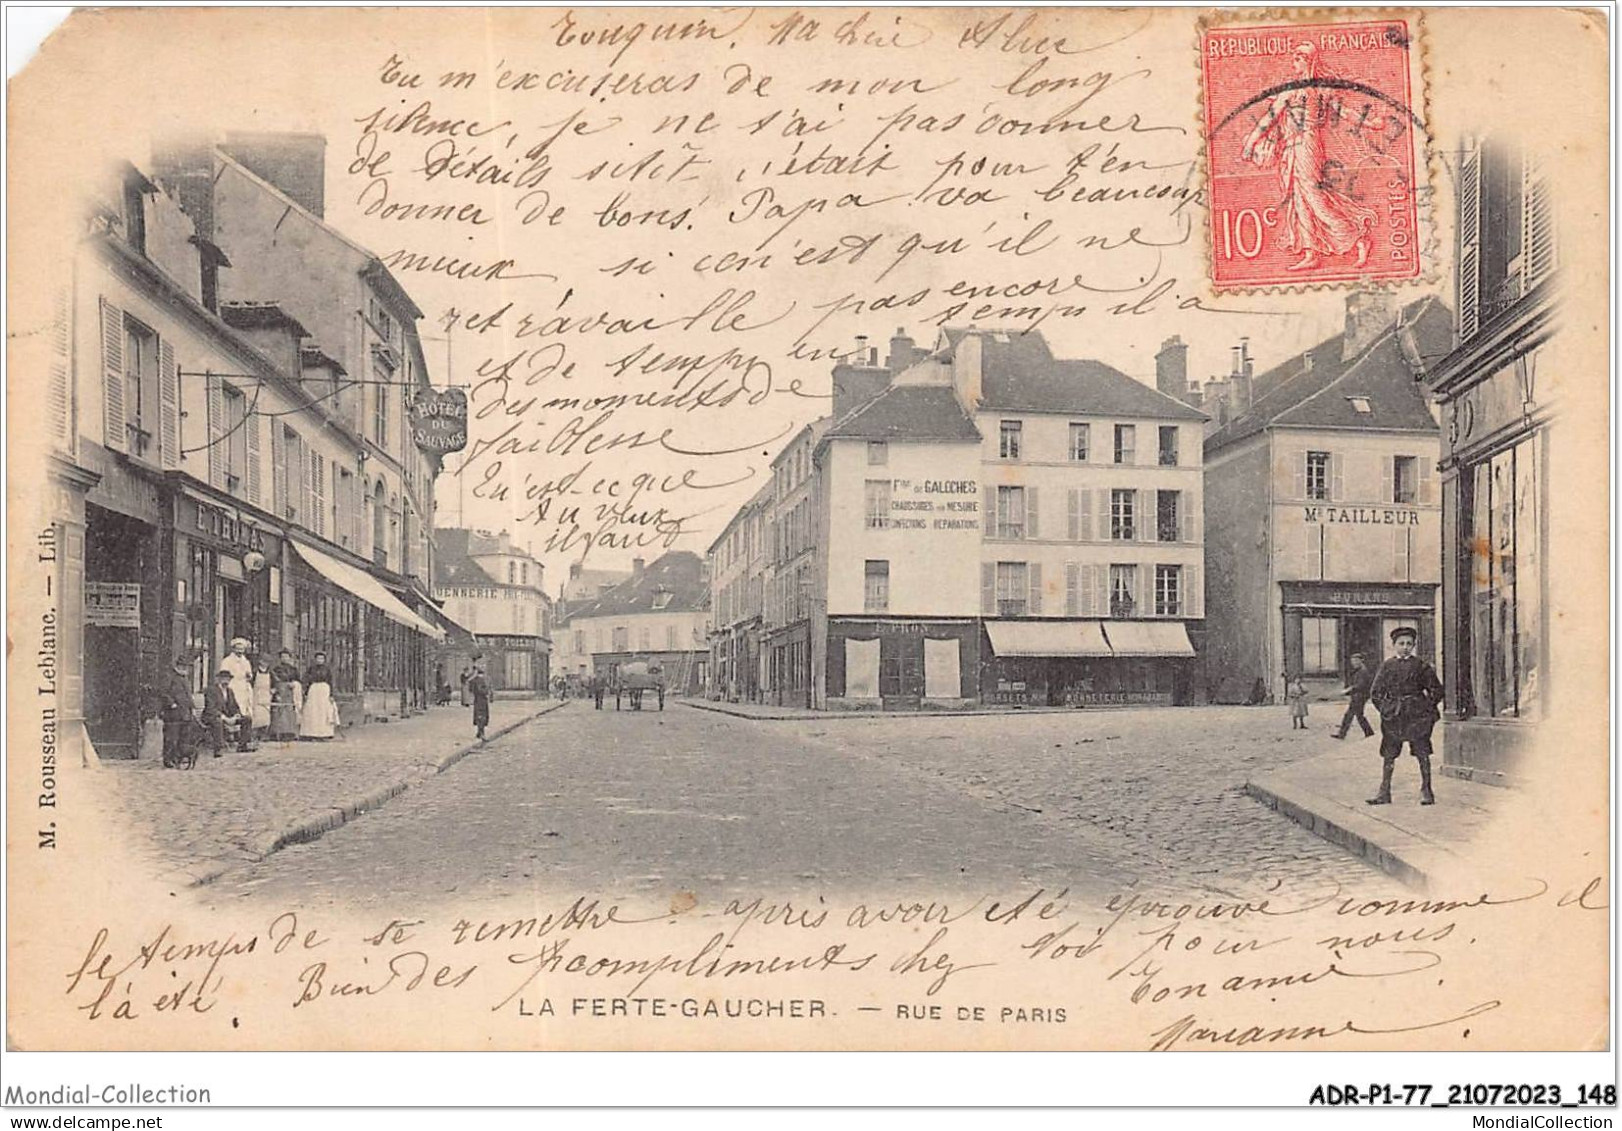 Touquin. Ma chère Alice
Tu m'excuseras de mon long
silence, je ne t'ai pas donner
de détails sitôt, c'était pour t'en
donner de bons. Papa va beaucoup
mieux si ce n'est qu'il ne
travaille pas encore
et de temps en temps il a
des moments de
faiblesse
Qu'est-ce que
tu veux
il faut
REPUBLIQUE FRANÇAISE
10c POSTES
HOTEL
DU
SAUVAGE
Fque DE GALOCHES
CHAUSSURES SUR MESURE
CONFECTIONS RÉPARATIONS
Md TAILLEUR
M. Rousseau Leblanc. — Lib.
le temps de se remettre après avoir été éprouvé comme il
l'a été. Bien des compliments chez toi pour nous.
Ton amie
Marianne
LA FERTE-GAUCHER. — RUE DE PARIS
Mondial-Collection
ADR-P1-77_21072023_148
MondialCollection
MondialCollection